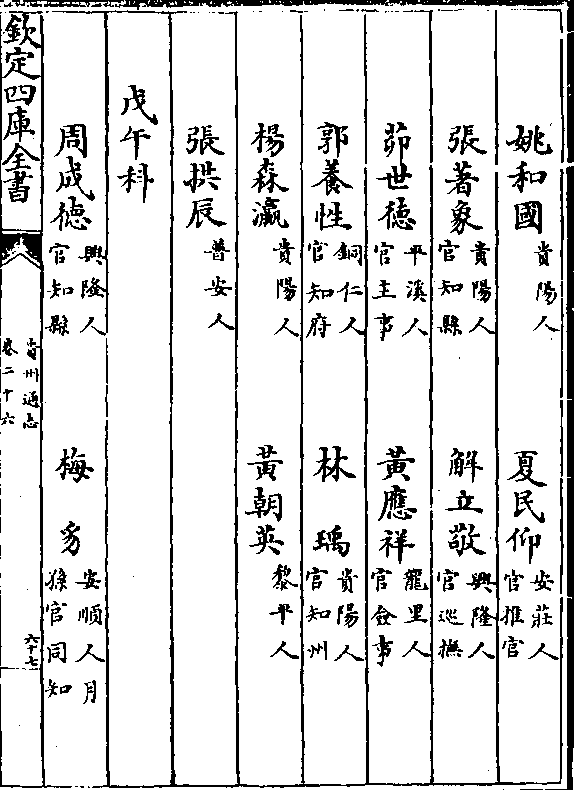 姚和國 貴陽人 夏民仰 安莊人官推官
張著象 貴陽人官知縣 解立敬 興隆人官巡撫
茆世德 平溪人官主事 黃應祥 龍里人官僉事
郭養性 銅仁人官知府 林瑀 貴陽人官知州
楊森瀛 貴陽人 黃朝英 黎平人
張拱辰 普安人
戊午科
周成德 興隆人官知縣 梅豸 安順人月官同知
欽定四庫全書 貴州通志卷二十六 六十七